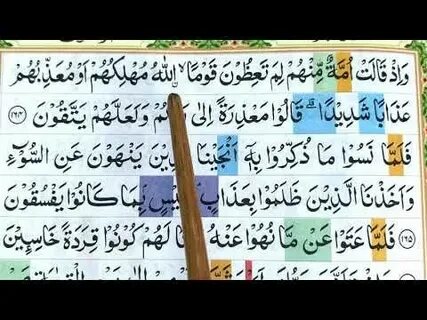 وَاِذْ قَالَتْ اُمَّةٌ مِّنْهُمْ لِمَ تَعِظُوْنَ قَوْمَاۙ اللّٰهُ مُهْلِكُهُمْ اَوْ مُعَذِّبُهُمْ
عَذَابًا شَدِيْدًاؕ قَالُوْا مَعْذِرَةً اِلٰى وَلَعَلَّهُمْ يَتَّقُوْنَ ۝١٦٤
فَلَمَّا نَسُوْا مَا ذُكِّرُوْا بِهٖۤ اَنْجَيْنَا يَنْهَوْنَ عَنِ السُّوْٓءِ
وَاَخَذْنَا الَّذِيْنَ ظَلَمُوْا بِعَذَابٍ بِمَا كَانُوْا يَفْسُقُوْنَ ۝١٦٥
فَلَمَّا عَتَوْا عَنْ مَّا نُهُوْا عَنْهُ لَهُمْ كُوْنُوْا قِرَدَةً خٰسِـِٕيْنَ